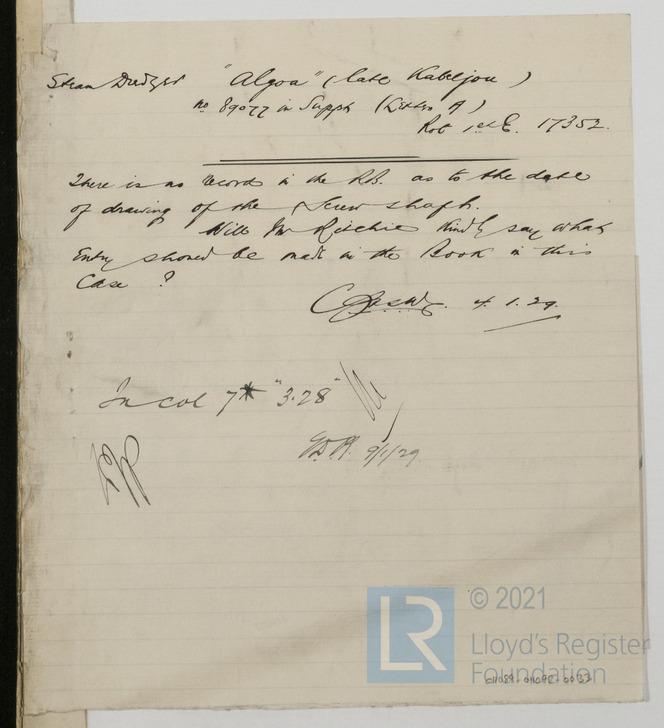 Steam Dredger "Algoa" (late Kabeljou)
No 89077 in Suppt (Letter A)
Rot 1st E. 17352.
There is no record in the R.B. as to the date
of drawing of the Screw shaft.
Will Mr Ritchie kindly say what
Entry should be made in the Book in this
Case ?
4.1.29.
In col 7* "3.28"
9/1/29
LR
© 2021
Lloyd's Register
Foundation
011089-011092-0033